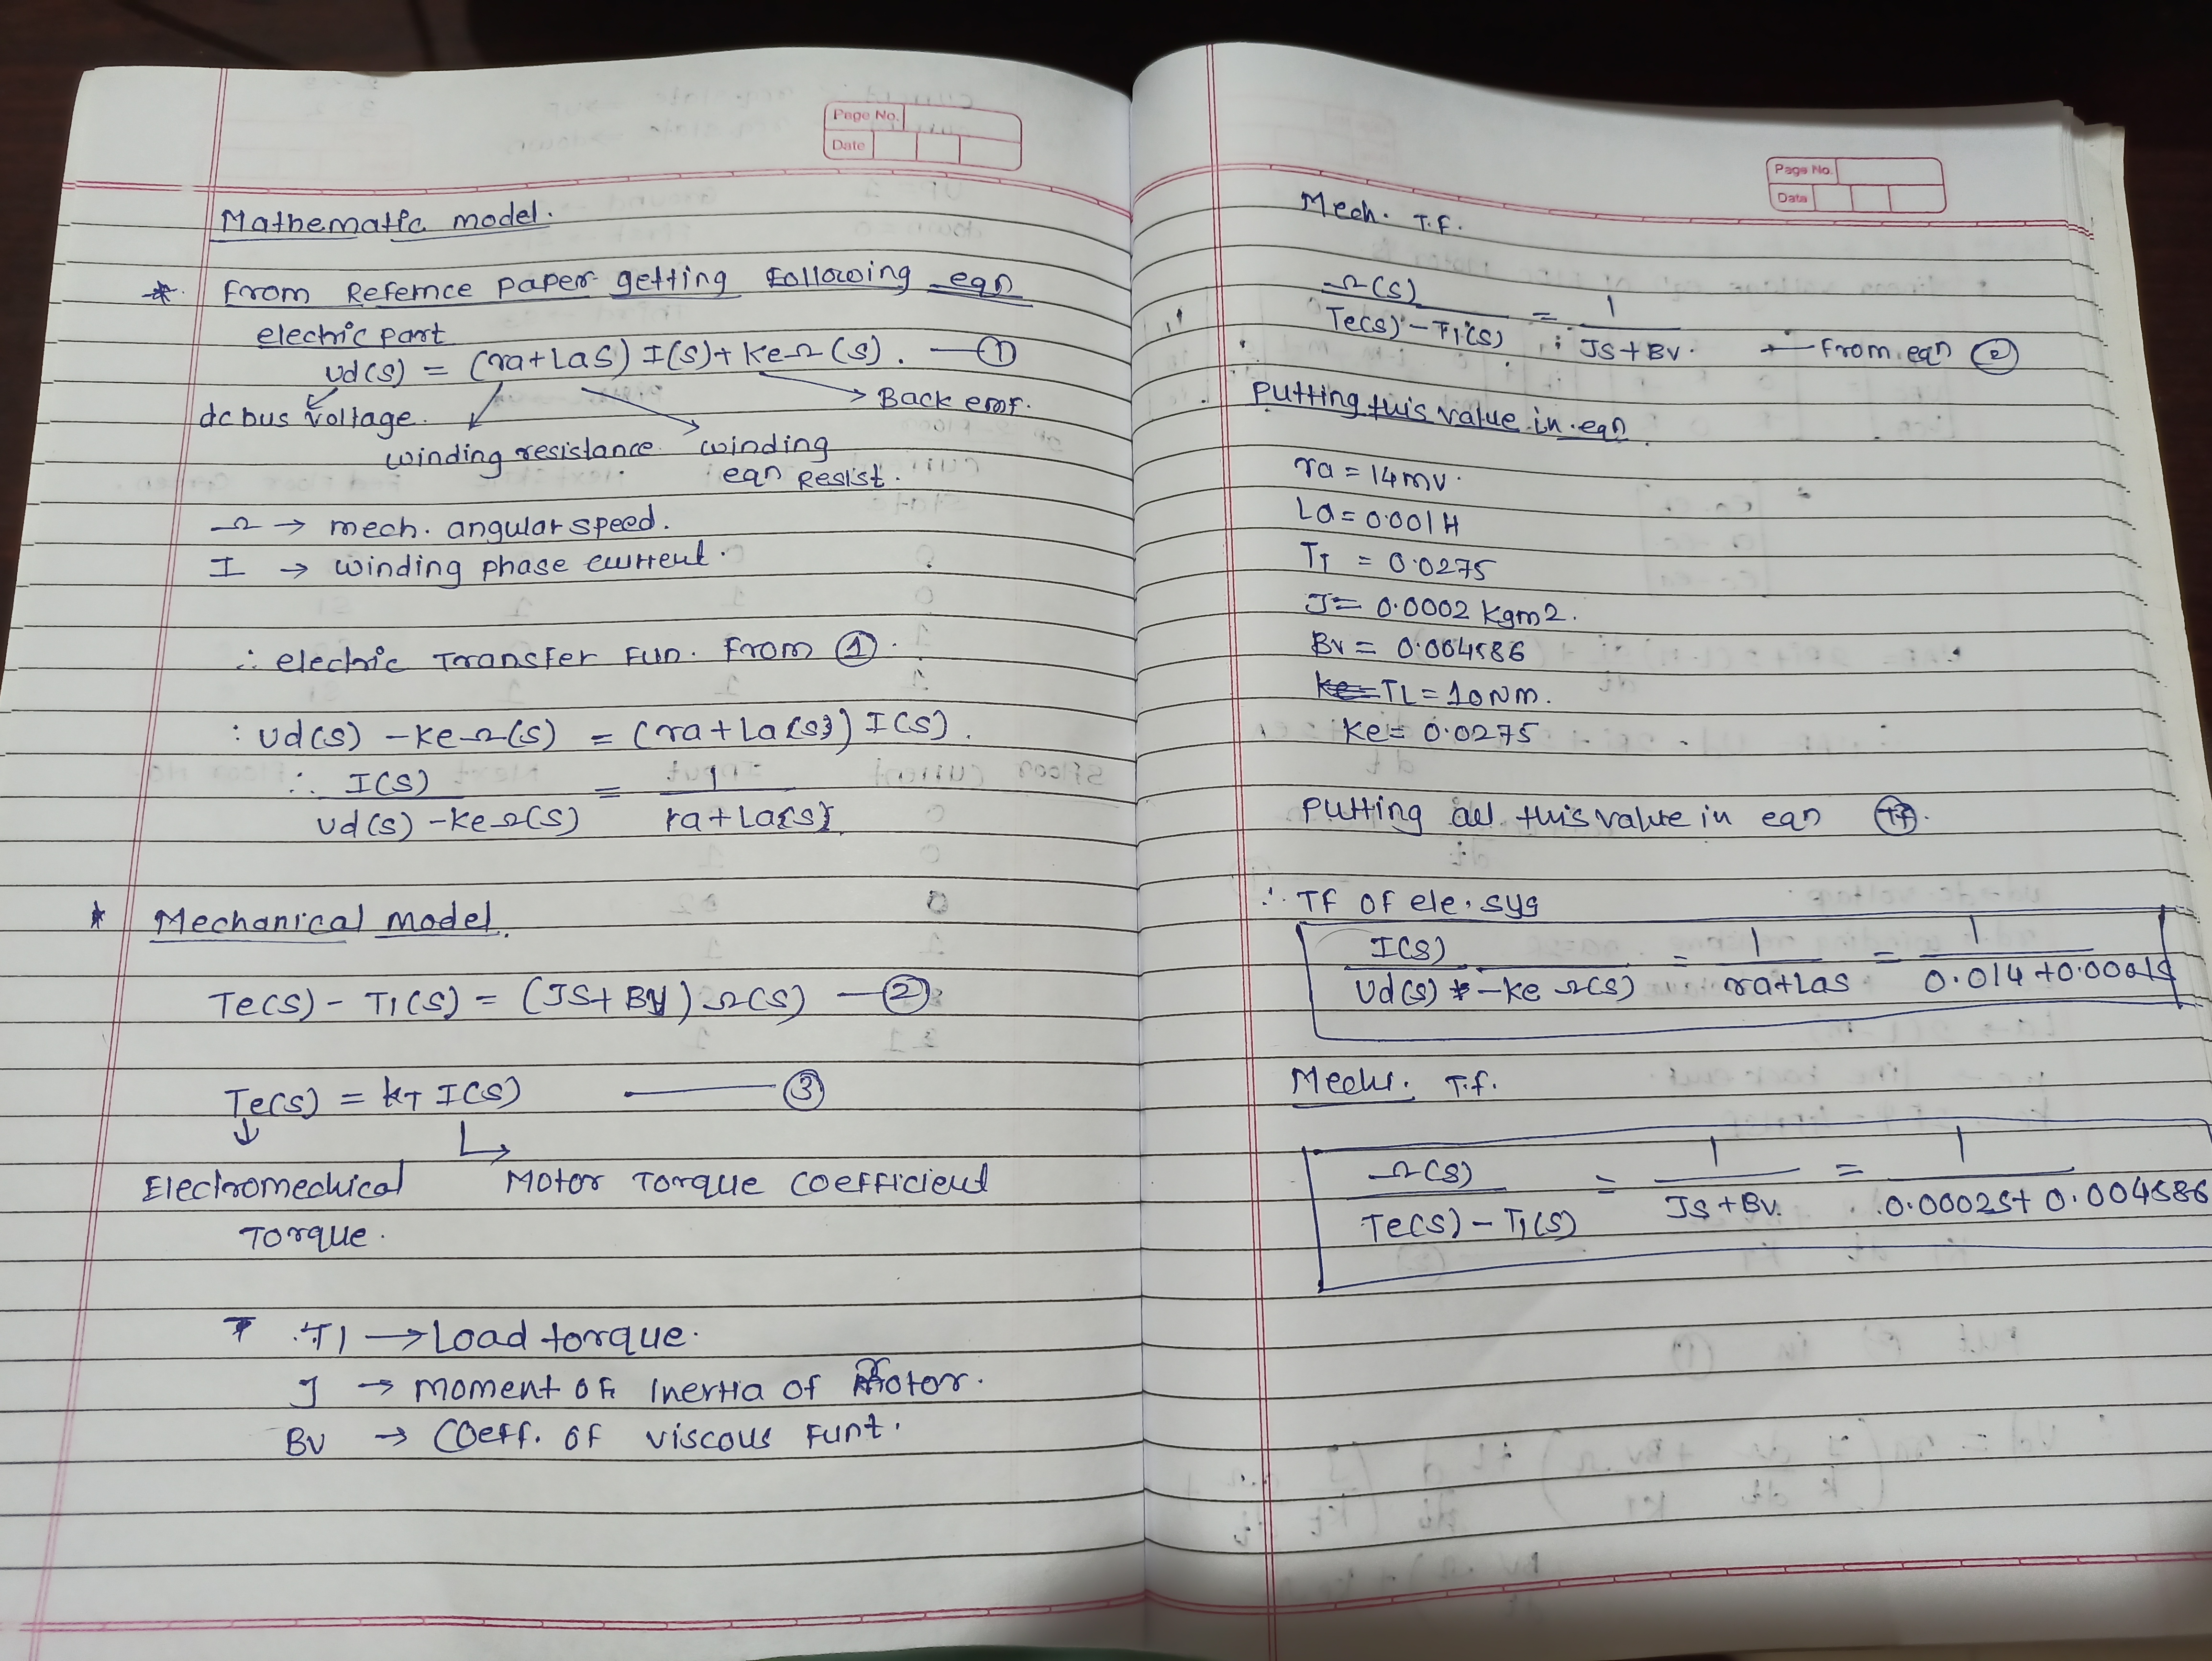 Page No.
Date
Mathematic model.
* From Refernce paper getting following eqn
electric part
Ud(s) = (ra+Las) I(s)+ KeΩ(s). — ①
dc bus voltage.
Back emf.
winding resistance. winding
eqn Resist.
Ω → mech. angular speed.
I → winding phase current.
∴ electric Transfer Fun. From ①.
: Ud(s) - KeΩ(s) = (ra+La{s}) I(s).
∴ I(s) / Ud(s) - KeΩ(s) = 1 / ra+La{s}.
* Mechanical model.
Te(s) - T1(s) = (JS+BV) Ω(s) — ②
Te(s) = kT I(s) — ③
Electromechical Motor Torque coefficient
Torque.
T1 → Load torque.
J → moment of Inertia of Motor.
BV → Coeff. of viscous Funt.
Page No.
Date
Mech. T.F.
Ω(s) / Te(s) - T1(s) = 1 / JS+BV. ← From eqn ②
Putting this value in eqn
ra = 14mv.
La = 0.001H
TT = 0.0275
J = 0.0002 Kgm2.
Bv = 0.004586
Ke= TL = 10Nm.
Ke = 0.0275
Putting all this value in eqn TF.
∴ TF of ele. sys
I(s) / Ud(s) - Ke Ω(s) = 1 / ra+Las = 1 / 0.014+0.001s
Mech. T.f.
Ω(s) / Te(s) - T1(s) = 1 / JS+BV. = 1 / 0.0002s+ 0.004586